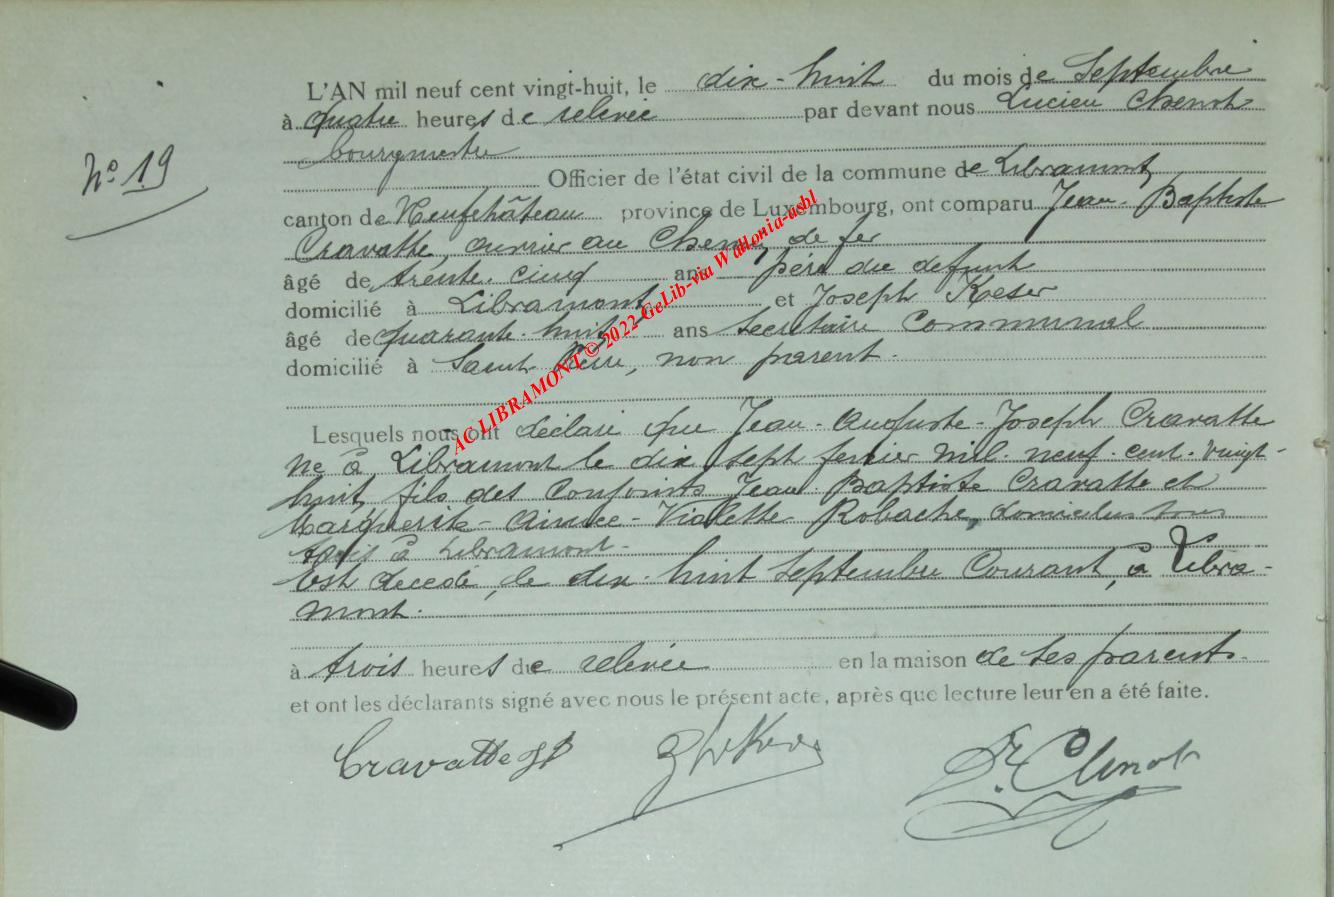 L'AN mil neuf cent vingt-huit, le dix-huit du mois de Septembre
à quatre heures de relevée par devant nous Lucien Chenot
bourgmestre
N° 19
Officier de l'état civil de la commune de Libramont,
canton de Neufchâteau province de Luxembourg, ont comparu Jean-Baptiste
Cravatte, ouvrier au Chemin de fer
âgé de trente-cinq ans père du défunt
domicilié à Libramont et Joseph Keser
âgé de quarante-huit ans Secrétaire Communal
domicilié à Saint-Pierre, non parent.
Lesquels nous ont déclaré que Jean-Auguste-Joseph Cravatte
né à Libramont le dix sept fevrier mil-neuf-cent-vingt-
huit, fils des Conjoints Jean-Baptiste Cravatte et
Marguerite-Aimée-Violette Robache, domiciliés tous
trois à Libramont-
Est décédé, le dix-huit Septembre Courant, à Libra-
mont.
à trois heures de relevée en la maison de ses parents.
et ont les déclarants signé avec nous le présent acte, après que lecture leur en a été faite.
Cravatte JB
Dr. Chenot
AC LIBRAMONT © 2022 GeLib-via Wallonia-asbl